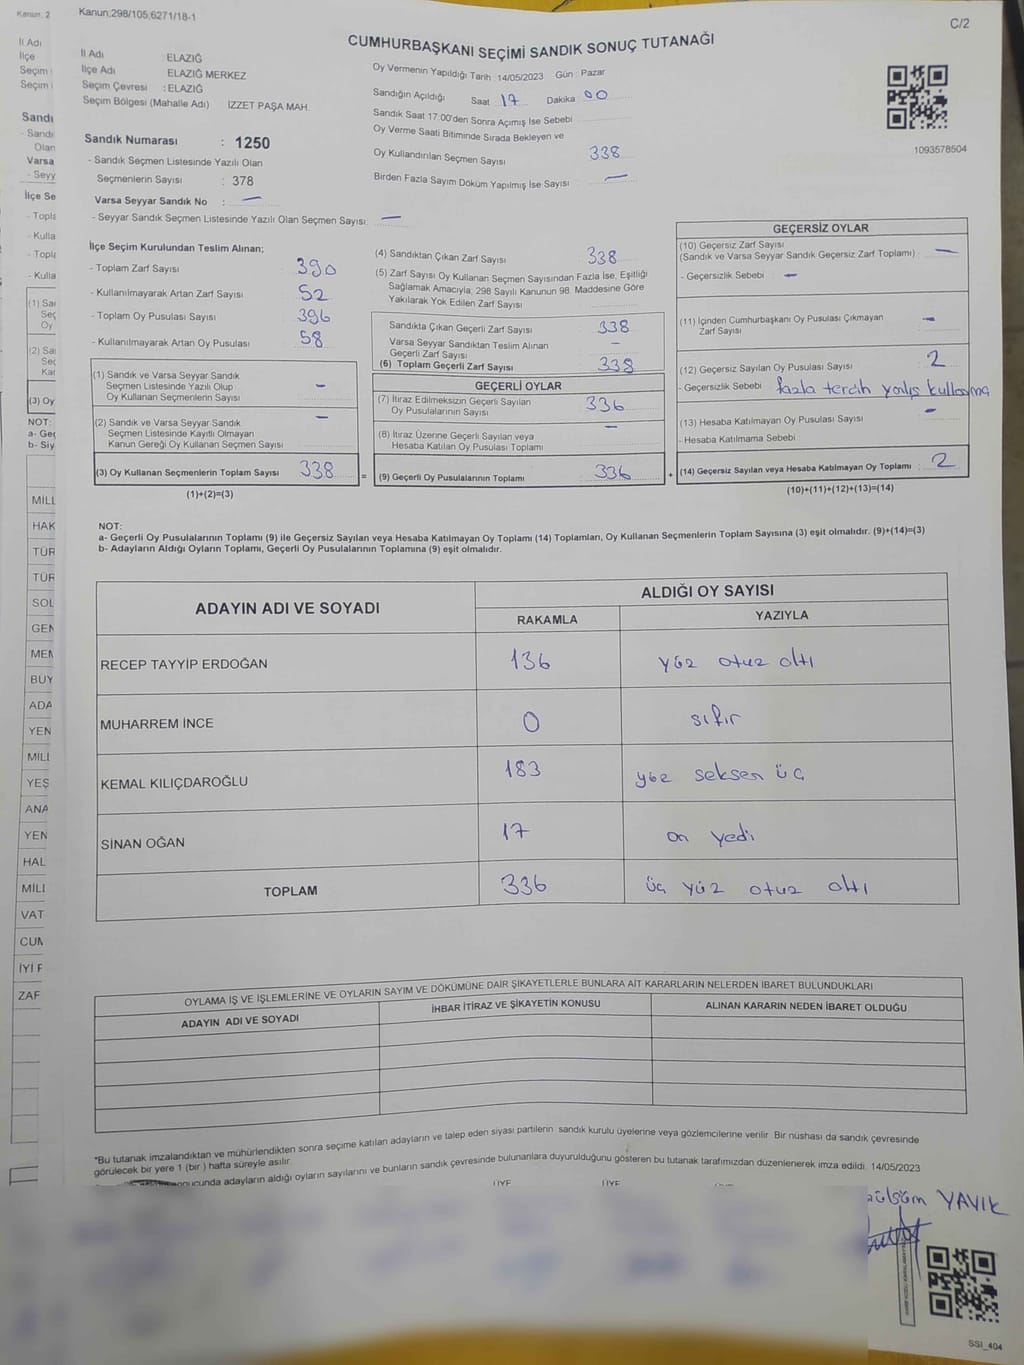 Kanun; 2
Kanun;298/105;6271/18-1
C/2
CUMHURBAŞKANI SEÇİMİ SANDIK SONUÇ TUTANAĞI
İl Adı : ELAZIĞ
İlçe Adı : ELAZIĞ MERKEZ
Seçim Çevresi : ELAZIĞ
Seçim Bölgesi (Mahalle Adı) : İZZET PAŞA MAH.
Oy Vermenin Yapıldığı Tarih 14/05/2023 Gün : Pazar
Sandığın Açıldığı Saat 17 Dakika 00
Sandık Saat 17:00'den Sonra Açımış İse Sebebi
Oy Verme Saati Bitiminde Sırada Bekleyen ve
Oy Kullandırılan Seçmen Sayısı 338
Birden Fazla Sayım Döküm Yapılmış İse Sayısı —
1093578504
Sandık Numarası : 1250
- Sandık Seçmen Listesinde Yazılı Olan
Seçmenlerin Sayısı : 378
Varsa Seyyar Sandık No : —
- Seyyar Sandık Seçmen Listesinde Yazılı Olan Seçmen Sayısı: —
İlçe Seçim Kurulundan Teslim Alınan;
- Toplam Zarf Sayısı 390
- Kullanılmayarak Artan Zarf Sayısı 52
- Toplam Oy Pusulası Sayısı 396
- Kullanılmayarak Artan Oy Pusulası 58
(1) Sandık ve Varsa Seyyar Sandık
Seçmen Listesinde Yazılı Olup
Oy Kullanan Seçmenlerin Sayısı —
(2) Sandık ve Varsa Seyyar Sandık
Seçmen Listesinde Kayıtlı Olmayan
Kanun Gereği Oy Kullanan Seçmen Sayısı —
(3) Oy Kullanan Seçmenlerin Toplam Sayısı 338 =
(1)+(2)=(3)
(4) Sandıktan Çıkan Zarf Sayısı 338
(5) Zarf Sayısı Oy Kullanan Seçmen Sayısından Fazla İse, Eşitliği
Sağlamak Amacıyla; 298 Sayılı Kanunun 98. Maddesine Göre
Yakılarak Yok Edilen Zarf Sayısı
Sandıkta Çıkan Geçerli Zarf Sayısı 338
Varsa Seyyar Sandıktan Teslim Alınan
Geçerli Zarf Sayısı —
(6) Toplam Geçerli Zarf Sayısı 338
GEÇERLİ OYLAR
(7) İtiraz Edilmeksizin Geçerli Sayılan
Oy Pusulalarının Sayısı 336
(8) İtiraz Üzerine Geçerli Sayılan veya
Hesaba Katılan Oy Pusulası Toplamı —
(9) Geçerli Oy Pusulalarının Toplamı 336 +
GEÇERSİZ OYLAR
(10) Geçersiz Zarf Sayısı
(Sandık ve Varsa Seyyar Sandık Geçersiz Zarf Toplamı) : —
- Geçersizlik Sebebi —
(11) İçinden Cumhurbaşkanı Oy Pusulası Çıkmayan
Zarf Sayısı —
(12) Geçersiz Sayılan Oy Pusulası Sayısı 2
- Geçersizlik Sebebi fazla tercih yanlış kullanma
(13) Hesaba Katılmayan Oy Pusulası Sayısı —
- Hesaba Katılmama Sebebi
(14) Geçersiz Sayılan veya Hesaba Katılmayan Oy Toplamı : 2
(10)+(11)+(12)+(13)=(14)
NOT:
a- Geçerli Oy Pusulalarının Toplamı (9) ile Geçersiz Sayılan veya Hesaba Katılmayan Oy Toplamı (14) Toplamları, Oy Kullanan Seçmenlerin Toplam Sayısına (3) eşit olmalıdır. (9)+(14)=(3)
b- Adayların Aldığı Oyların Toplamı, Geçerli Oy Pusulalarının Toplamına (9) eşit olmalıdır.
ADAYIN ADI VE SOYADI
ALDIĞI OY SAYISI
RAKAMLA YAZIYLA
RECEP TAYYİP ERDOĞAN 136 yüz otuz altı
MUHARREM İNCE 0 sıfır
KEMAL KILIÇDAROĞLU 183 yüz seksen üç
SİNAN OĞAN 17 on yedi
TOPLAM 336 üç yüz otuz altı
OYLAMA İŞ VE İŞLEMLERİNE VE OYLARIN SAYIM VE DÖKÜMÜNE DAİR ŞİKAYETLERLE BUNLARA AİT KARARLARIN NELERDEN İBARET BULUNDUKLARI
ADAYIN ADI VE SOYADI İHBAR İTİRAZ VE ŞİKAYETİN KONUSU ALINAN KARARIN NEDEN İBARET OLDUĞU
*Bu tutanak imzalandıktan ve mühürlendikten sonra seçime katılan adayların ve talep eden siyasi partilerin sandık kurulu üyelerine veya gözlemcilerine verilir. Bir nüshası da sandık çevresinde
görülecek bir yere 1 (bir ) hafta süreyle asılır.
onucunda adayların aldığı oyların sayılarını ve bunların sandık çevresinde bulunanlara duyurulduğunu gösteren bu tutanak tarafımızdan düzenlenerek imza edildi. 14/05/2023
ÜYE ÜYE
YAVIK
SSI_404